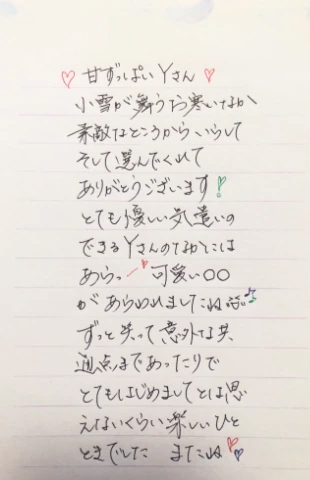 ♡ 甘ずっぱい Yさん ♡
小雪が舞うお寒いなか
素敵なところからいらして
そして選んでくれて
ありがとうございます!
とても優しい気遣いの
できるYさんのなかには
あらっー♡可愛い○○
があらわれましたね♪
ずっと笑って意外な共
通点まであったりで
とてもはじめましてとは思
えないくらい楽しいひと
ときでした またね♡♡